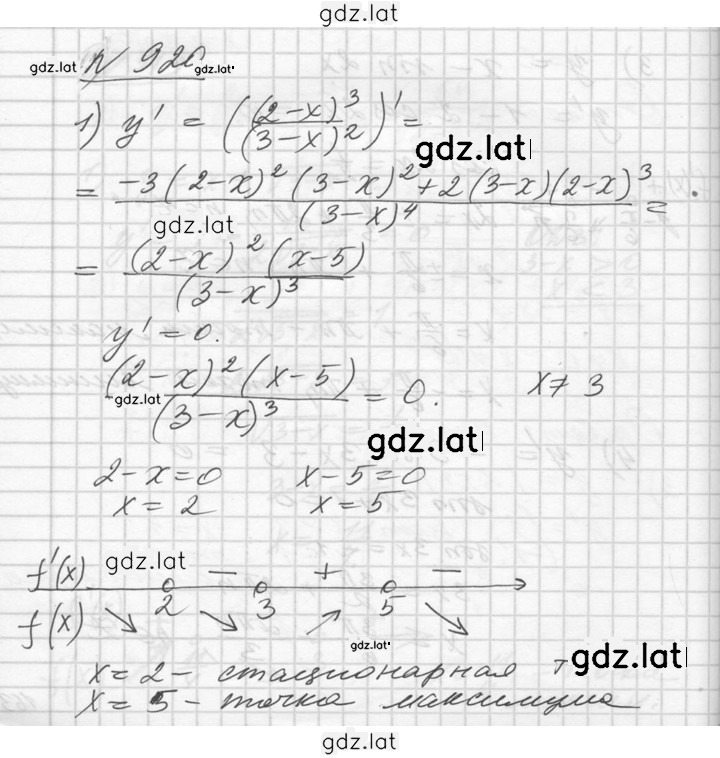 gdz.lat
gdz.lat N 920 gdz.lat
1) y' = ((2-x)^3/(3-x)^2)' =
gdz.lat
= (-3(2-x)^2(3-x)^2+2(3-x)(2-x)^3)/(3-x)^4 =
gdz.lat
= ((2-x)^2(x-5))/(3-x)^3
y' = 0.
((2-x)^2(x-5))/(3-x)^3 = 0. x≠3
gdz.lat
gdz.lat
2-x=0 x-5=0
x=2 x=5
f'(x) gdz.lat - + -
2 3 5
f(x) ↘ ↘ ↗ ↘
gdz.lat
x=2 - стационарная т gdz.lat
x=5 - точка максимума
gdz.lat